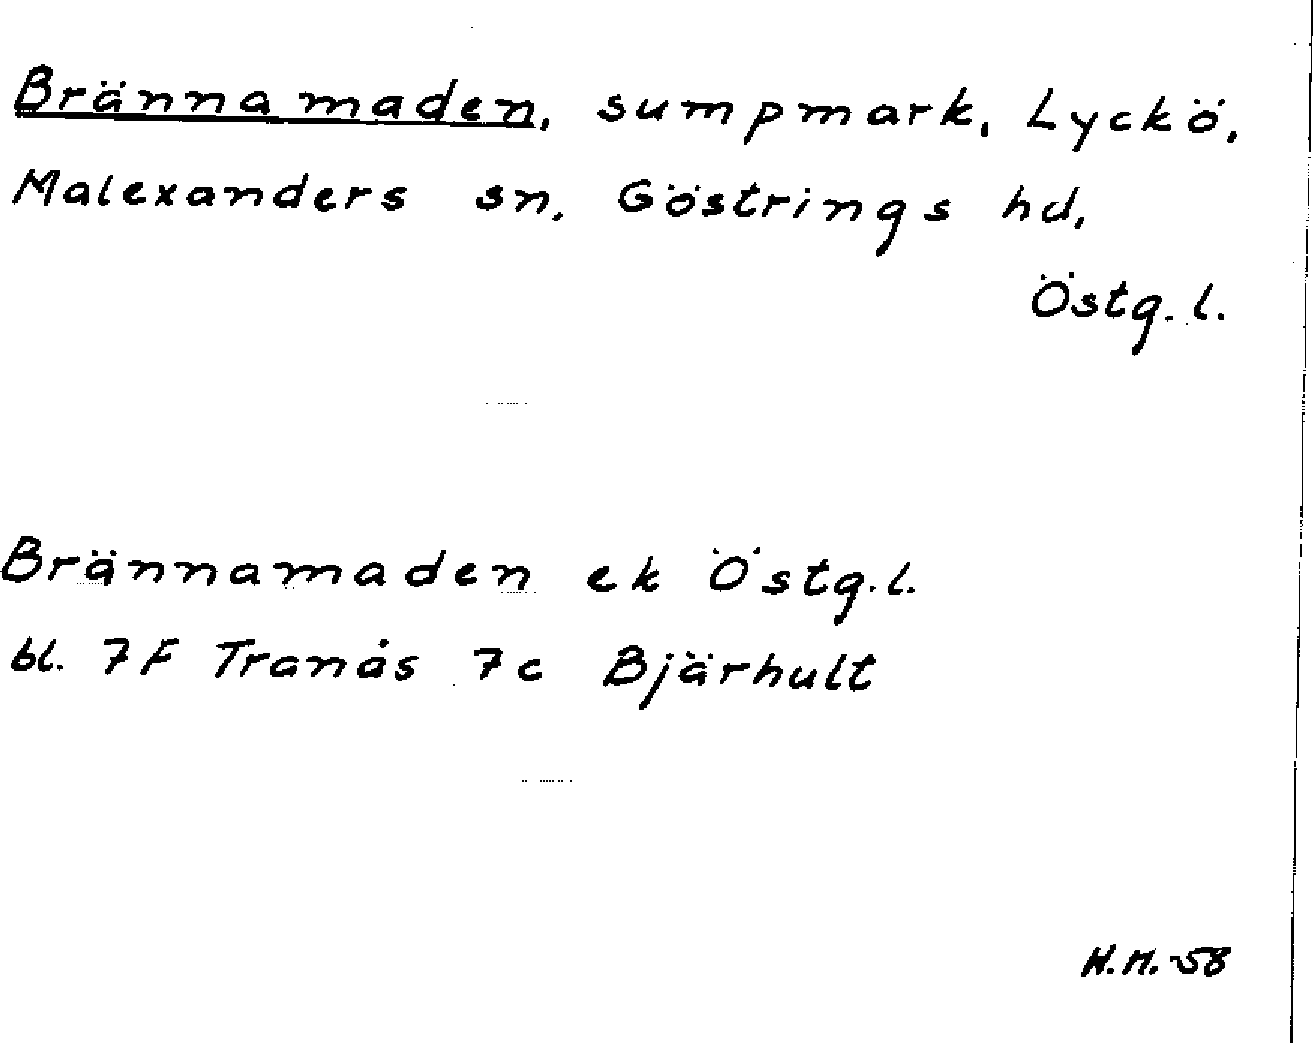 Brännamaden, sumpmark, Lyckö,
Malexanders sn, Göstrings hd,
Östg. l.
Brännamaden ek Östg. l.
bl. 7F Tranås 7c Bjärhult
H.M. -58